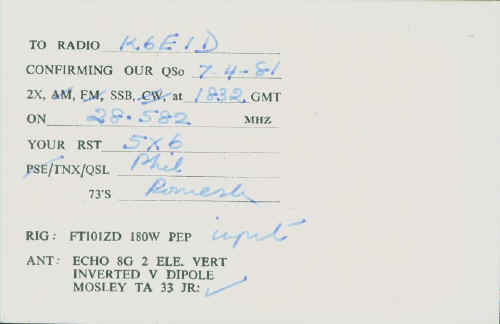 TO RADIO K6EID
CONFIRMING OUR QSo 7-4-81
2X, AM, FM, SSB, CW, at 1832 GMT
ON 28.582 MHZ
YOUR RST 5X6
PSE/TNX/QSL Phil
73'S Romesh
RIG: FT101ZD 180W PEP input
ANT: ECHO 8G 2 ELE. VERT
INVERTED V DIPOLE
MOSLEY TA 33 JR: